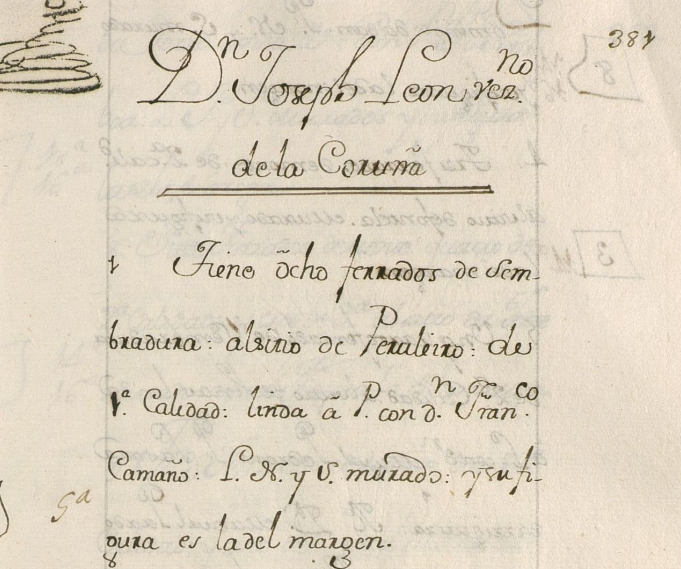 381
D.n Joseph Leon, vez.no
de la Coruña
1 Tiene ocho ferrados de Sem-
bradura: al sitio de Peruleiro: de
1.ª Calidad: linda â P. con d.n Fran.co
Camaño: L. N. y S. murado: y su fi-
gura es la del margen.
5ª